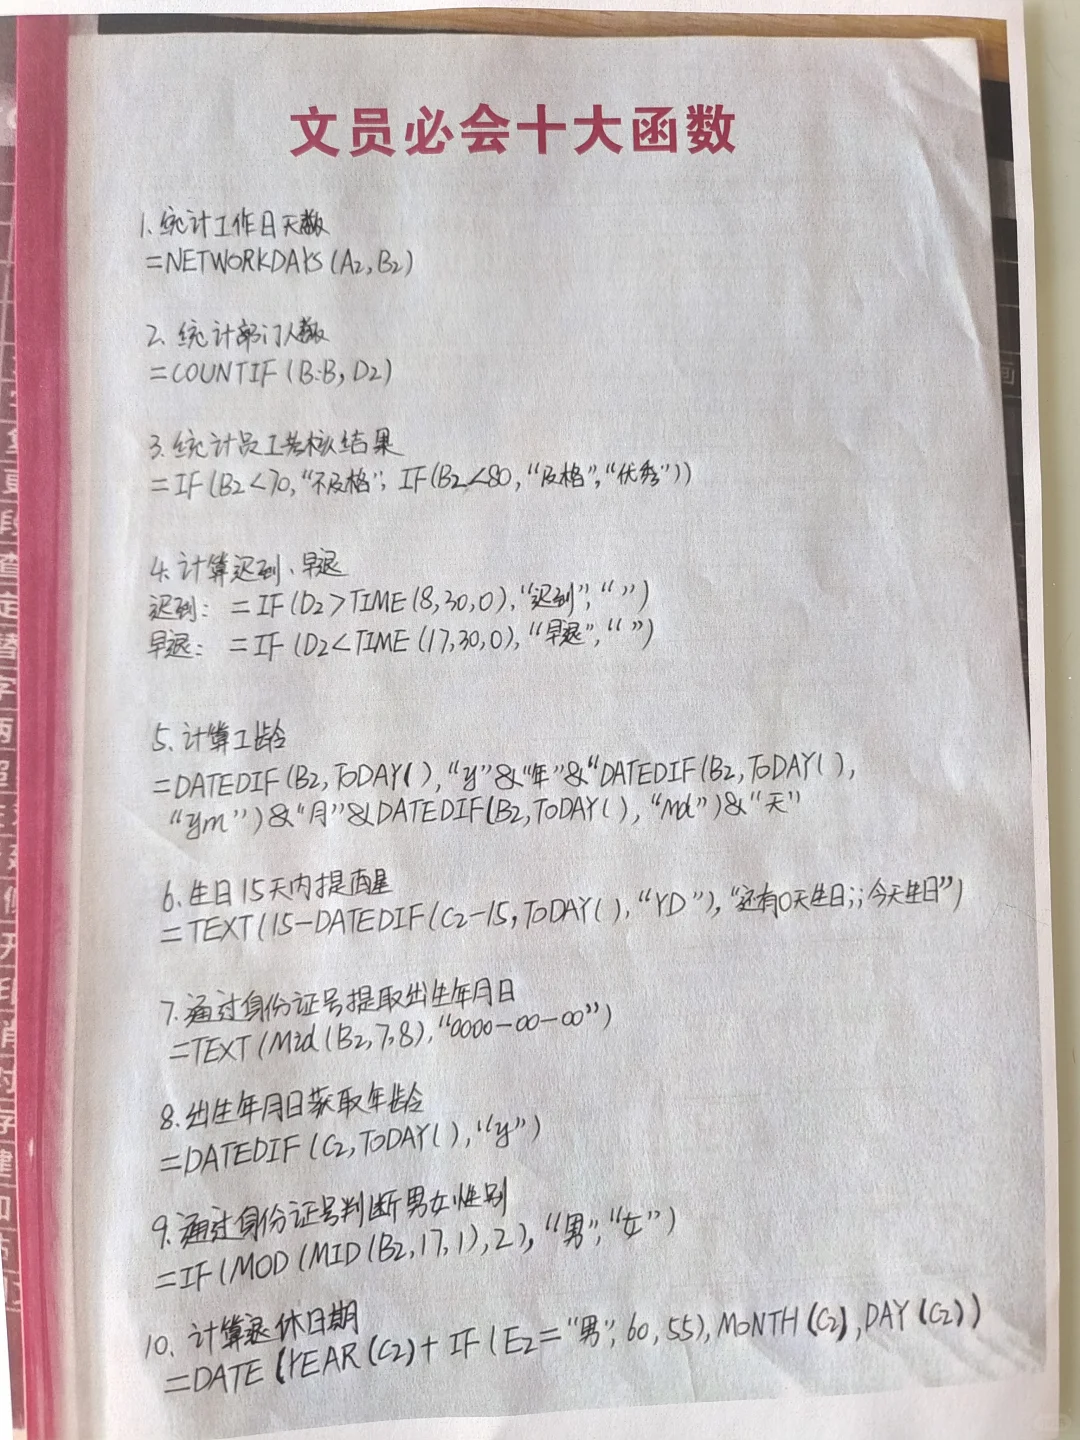 文员必会十大函数
1. 统计工作日天数
=NETWORKDAYS(A2,B2)
2. 统计部门人数
=COUNTIF(B:B,D2)
3. 统计员工考核结果
=IF(B2<70,“不及格”,IF(B2<80,“及格”,“优秀”))
4. 计算迟到、早退
迟到: =IF(D2>TIME(8,30,0),“迟到”,“ ”)
早退: =IF(D2<TIME(17,30,0),“早退”,“ ”)
5. 计算工龄
=DATEDIF(B2,TODAY(),“y”&“年”&“DATEDIF(B2,TODAY(),
“ym”)&“月”&DATEDIF(B2,TODAY(),“Md”)&“天”
6. 生日15天内提醒
=TEXT(15-DATEDIF(C2-15,TODAY(),“YD”),“还有0天生日;;今天生日”)
7. 通过身份证号提取出生年月日
=TEXT(Mid(B2,7,8),“0000-00-00”)
8. 出生年月日获取年龄
=DATEDIF(C2,TODAY(),“y”)
9. 通过身份证号判断男女性别
=IF(MOD(MID(B2,17,1),2),“男”,“女”)
10. 计算退休日期
=DATE(YEAR(C2)+IF(E2=“男”,60,55),MONTH(C2),DAY(C2))